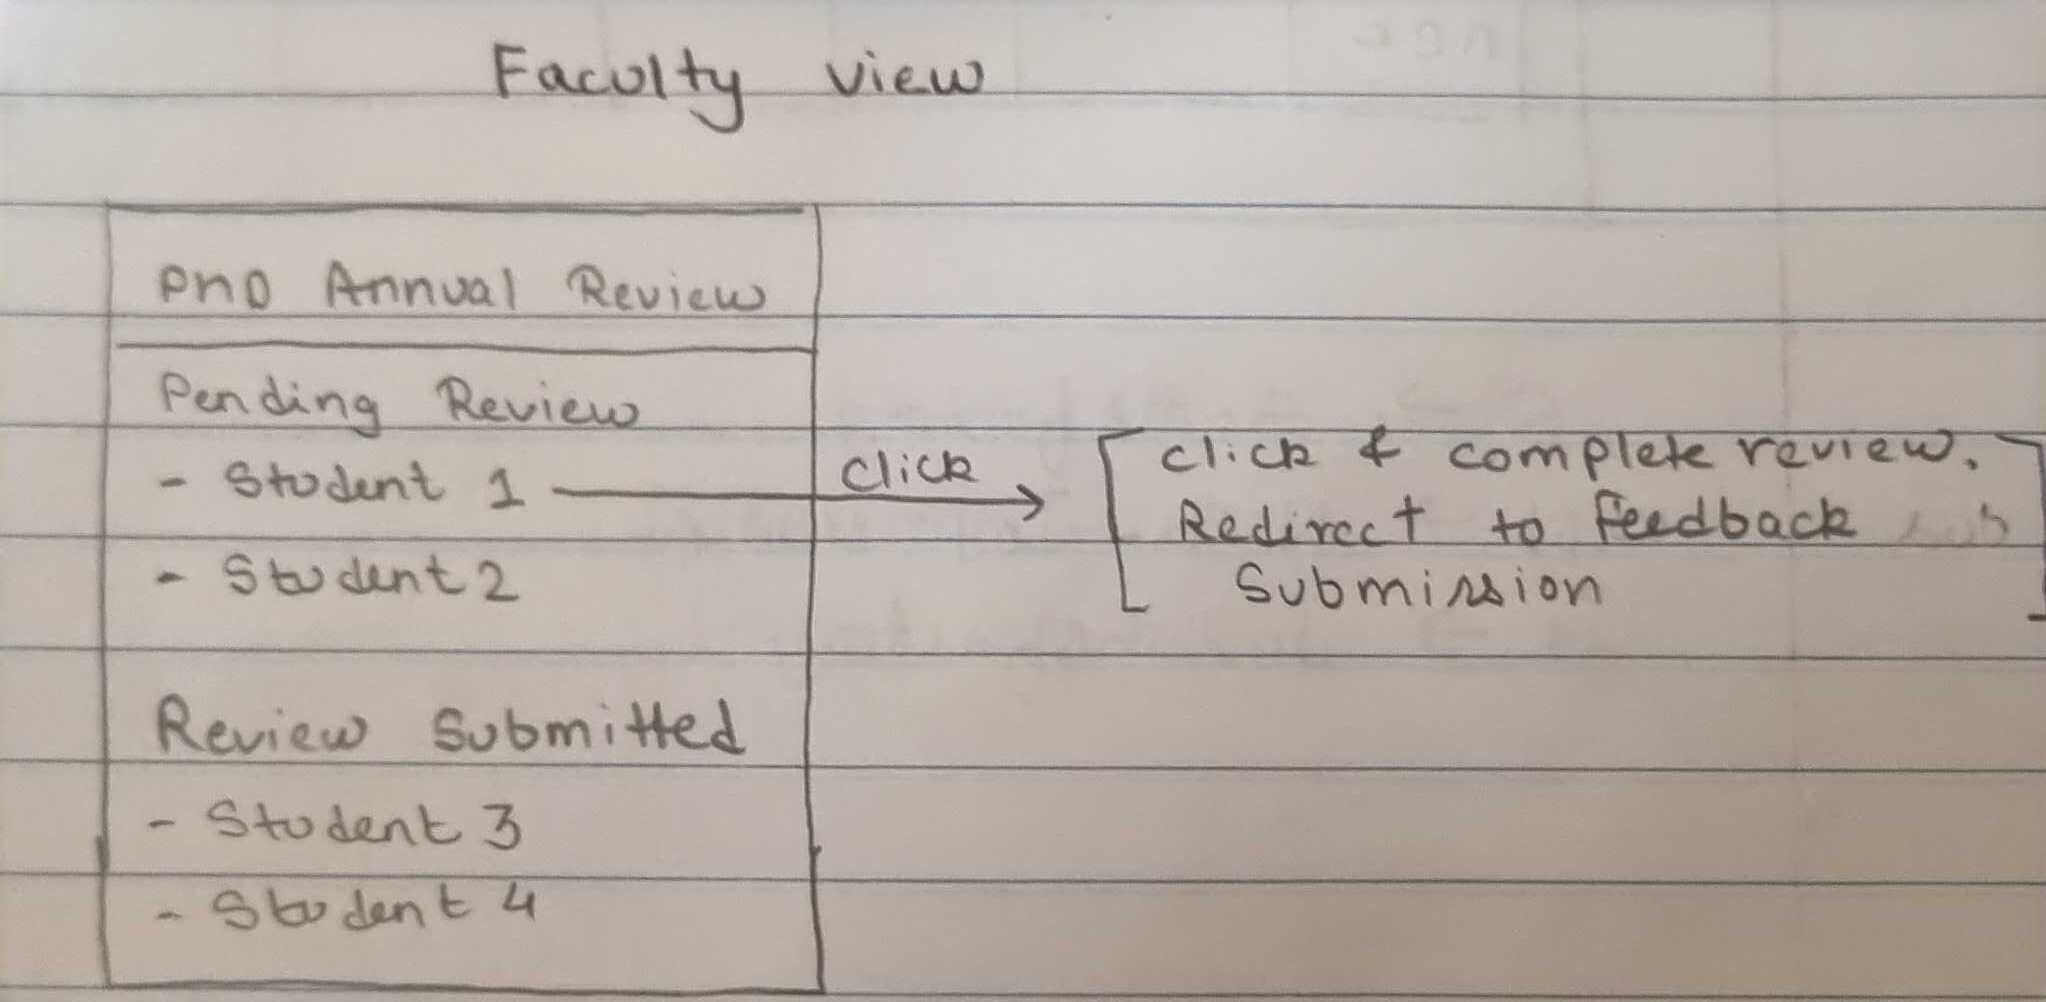 Faculty view
PhD Annual Review
Pending Review
- Student 1
click
click & complete review.
Redirect to feedback
submission
- Student 2
Review Submitted
- Student 3
- Student 4